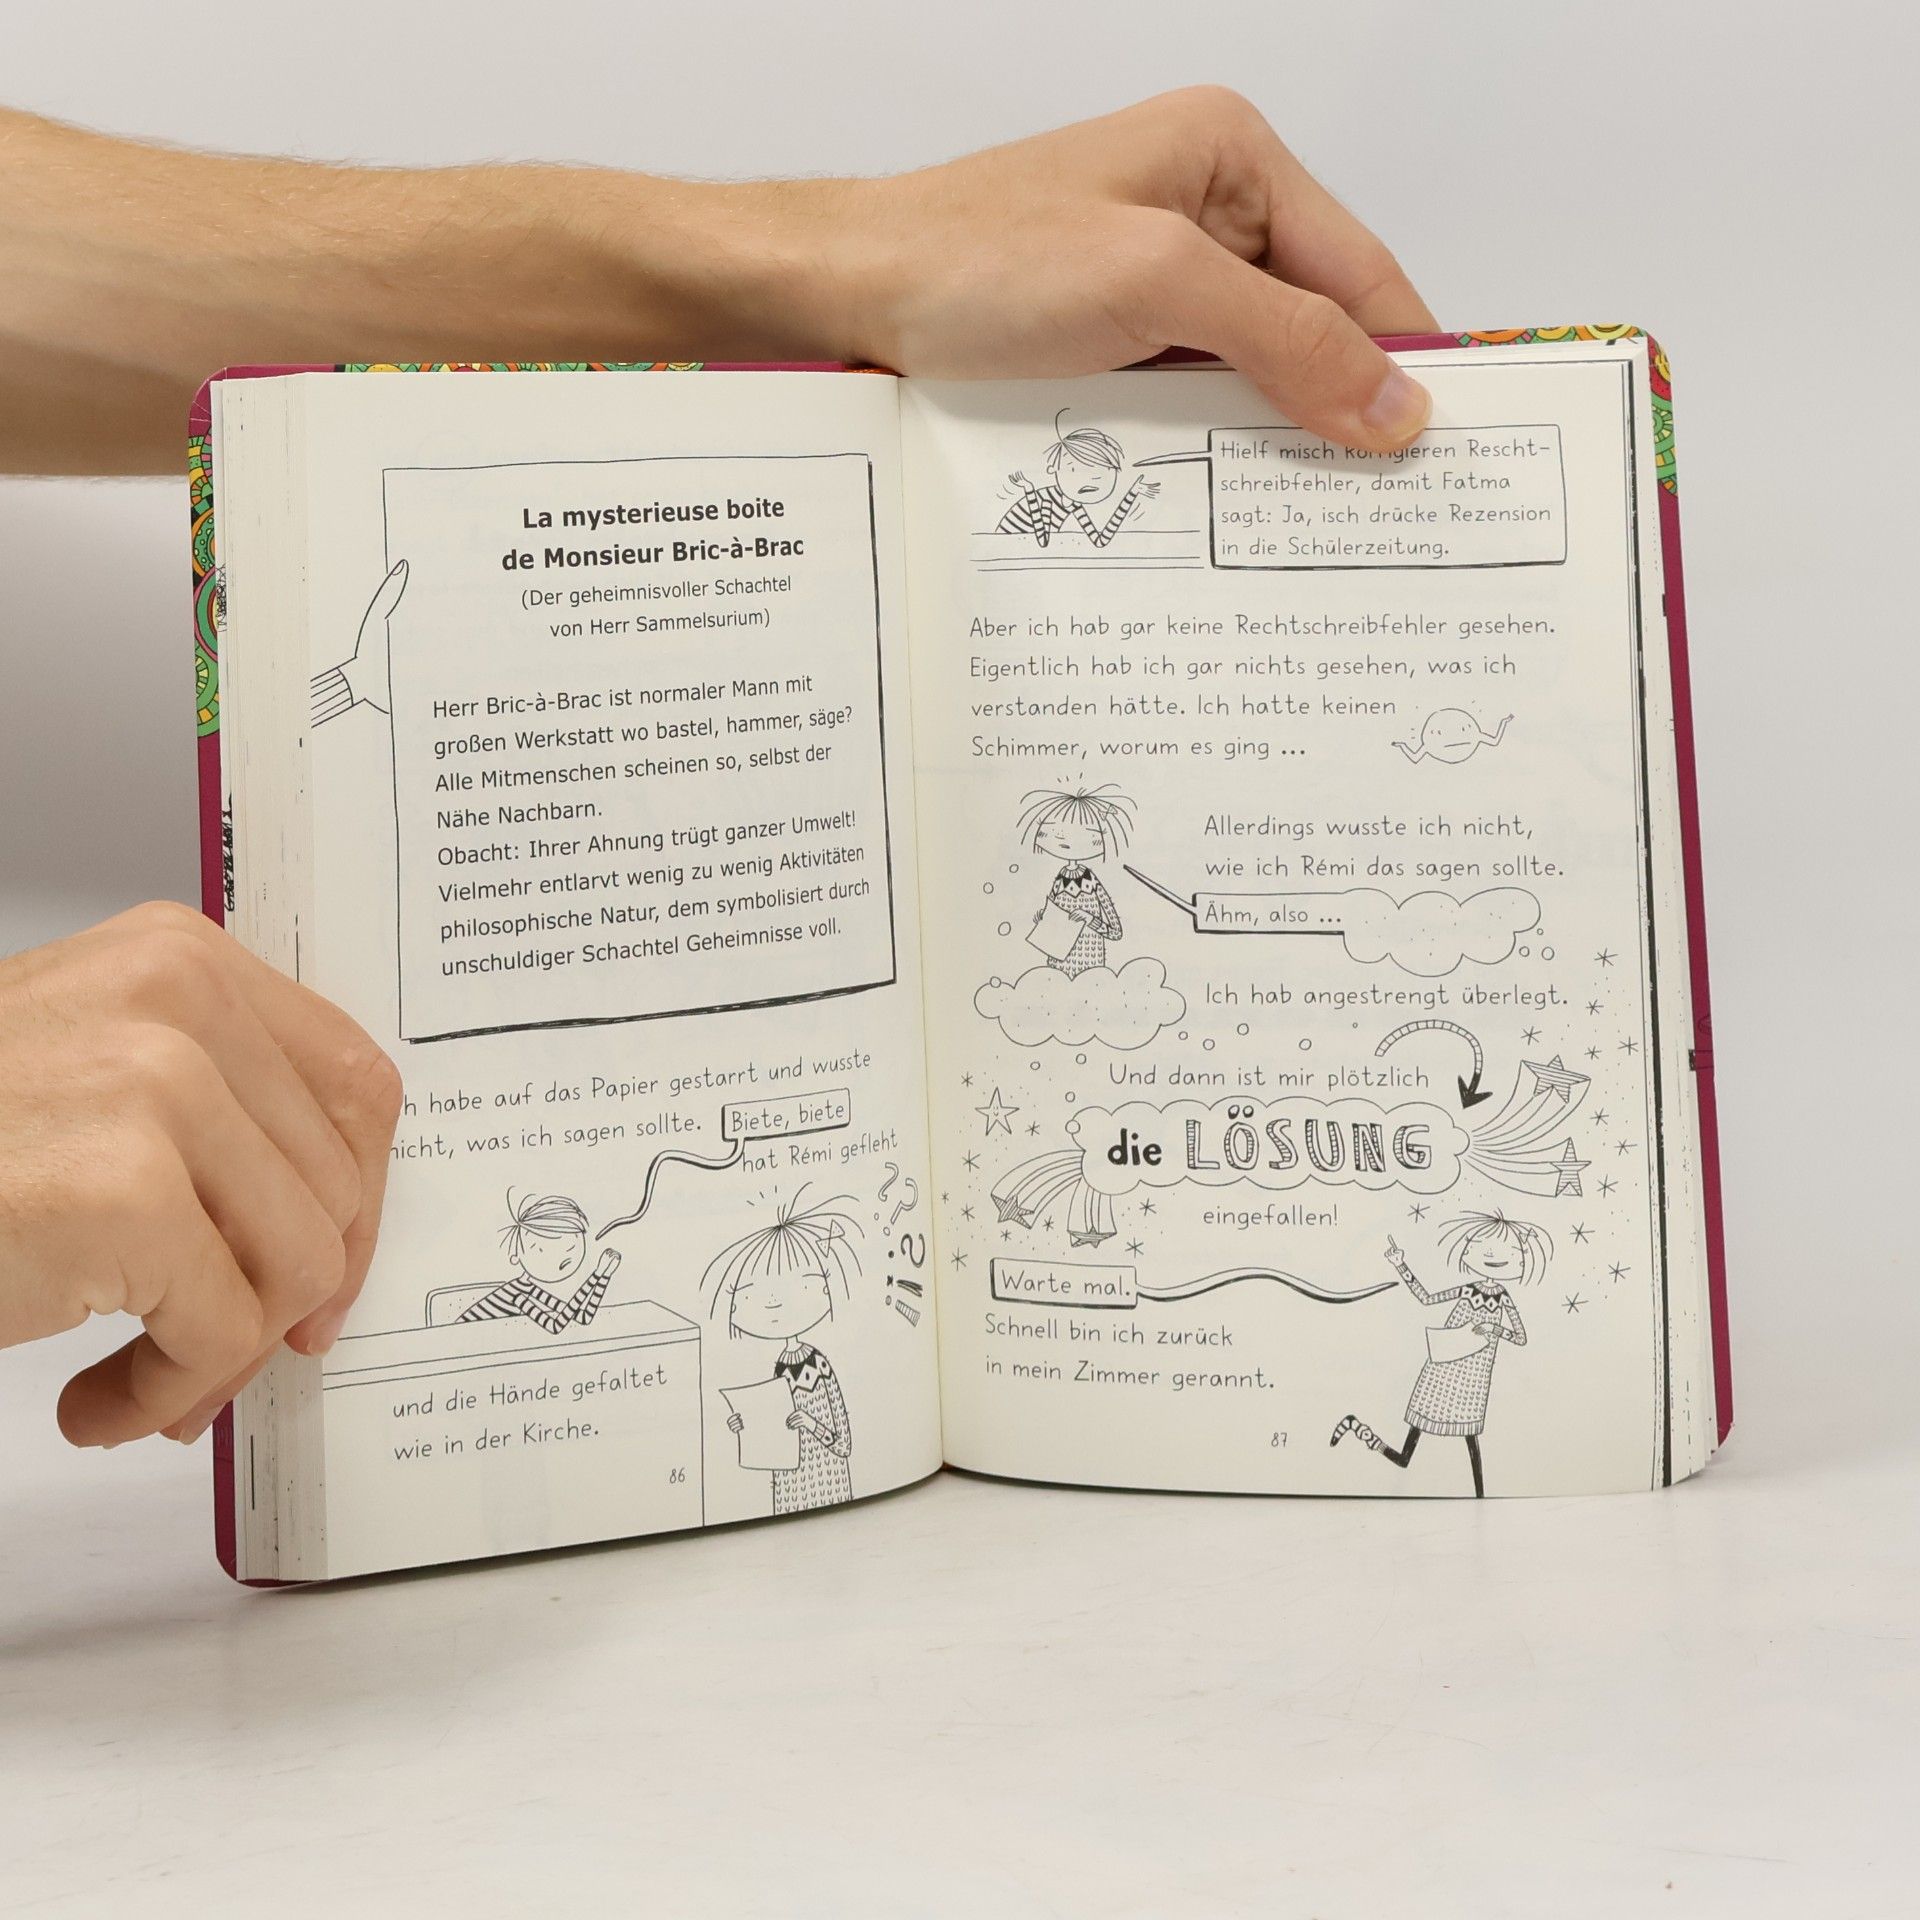 La mysterieuse boite
de Monsieur Bric-à-Brac
(Der geheimnisvoller Schachtel
von Herr Sammelsurium)
Herr Bric-à-Brac ist normaler Mann mit
großen Werkstatt wo bastel, hammer, säge?
Alle Mitmenschen scheinen so, selbst der
Nähe Nachbarn.
Obacht: Ihrer Ahnung trügt ganzer Umwelt!
Vielmehr entlarvt wenig zu wenig Aktivitäten
philosophische Natur, dem symbolisiert durch
unschuldiger Schachtel Geheimnisse voll.
habe auf das Papier gestarrt und wusste
nicht, was ich sagen sollte. Biete, biete
hat Rémi gefleht
und die Hände gefaltet
wie in der Kirche.
86
Hielf misch Rescht-
schreibfehler, damit Fatma
sagt: Ja, isch drücke Rezension
in die Schülerzeitung.
Aber ich hab gar keine Rechtschreibfehler gesehen.
Eigentlich hab ich gar nichts gesehen, was ich
verstanden hätte. Ich hatte keinen
Schimmer, worum es ging ...
Allerdings wusste ich nicht,
wie ich Rémi das sagen sollte.
Ähm, also ...
Ich hab angestrengt überlegt.
Und dann ist mir plötzlich
die LÖSUNG
eingefallen!
Warte mal.
Schnell bin ich zurück
in mein Zimmer gerannt.
87